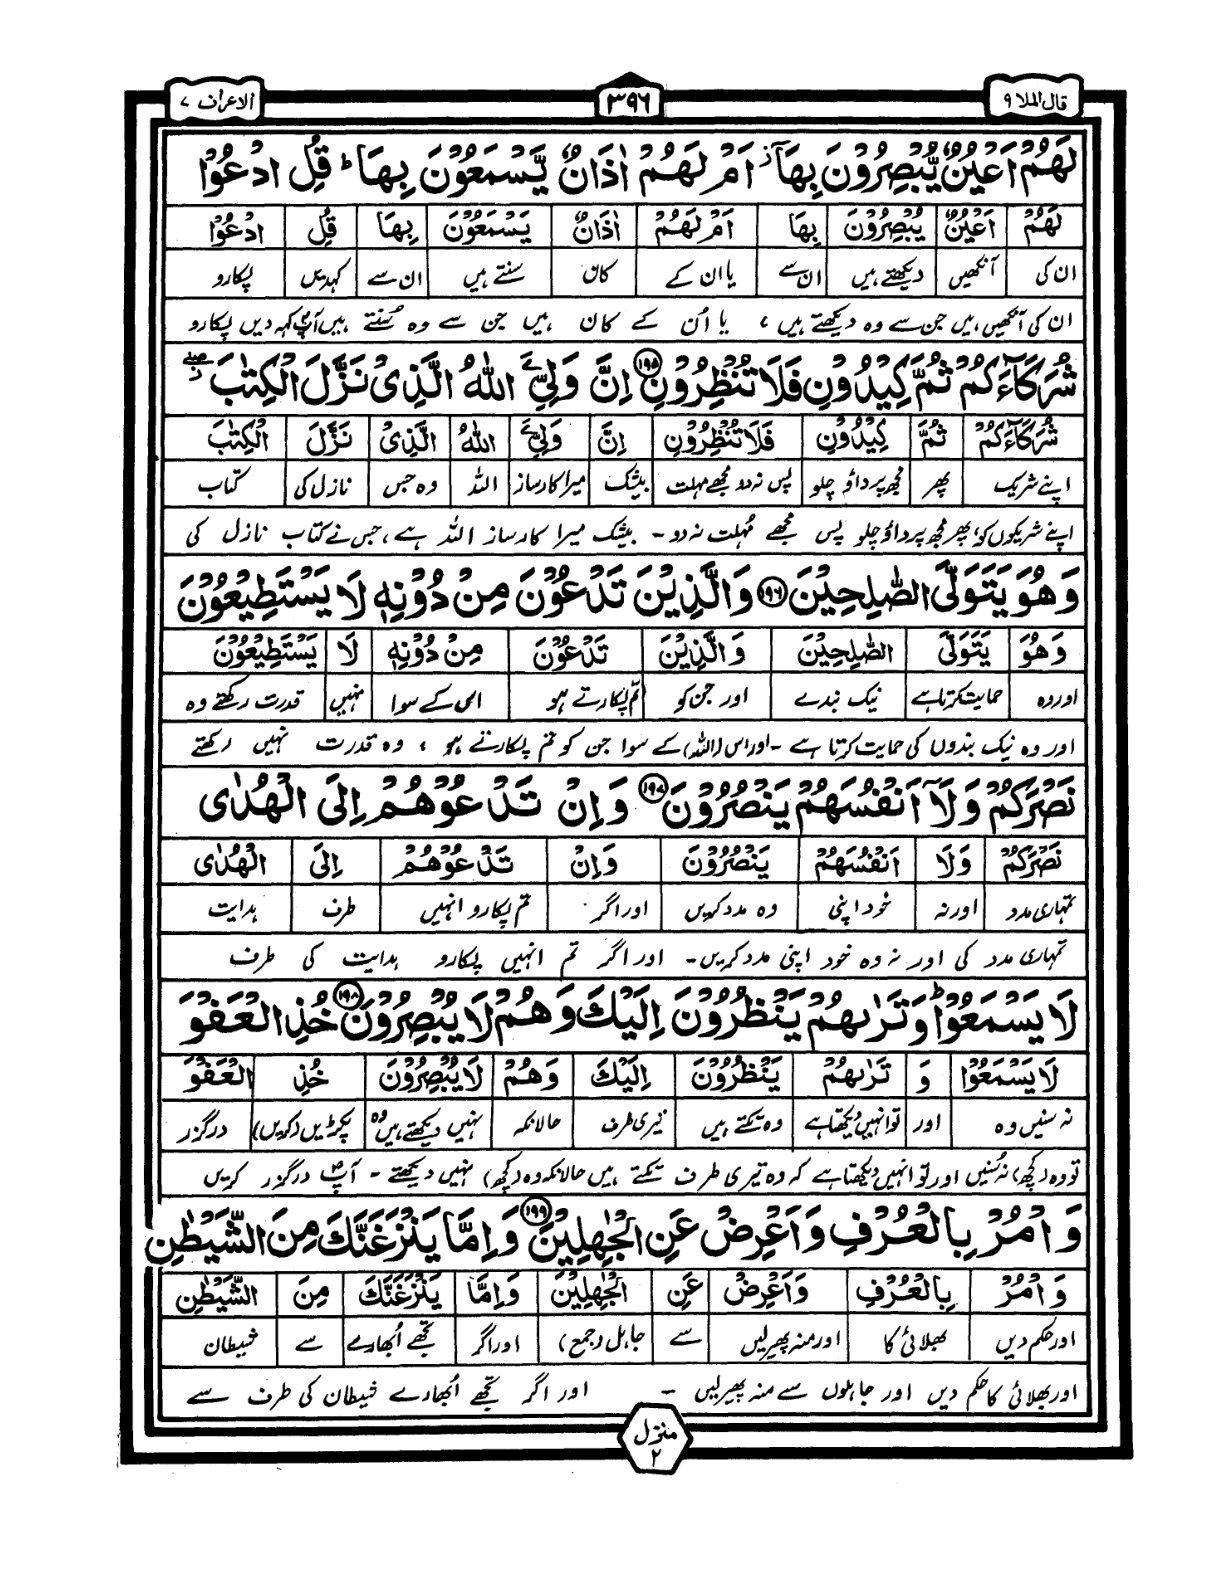 قال الملا ۹
۳۹۶
الاعراف ۷
لَهُمْ اَعْيُنٌ يُّبْصِرُوْنَ بِهَآ ۡ اَمْ لَهُمْ اٰذَانٌ يَّسْمَعُوْنَ بِهَا ؕ قُلِ ادْعُوْا
لَهُمْ اَعْيُنٌ يُبْصِرُوْنَ بِهَا اَمْ لَهُمْ اٰذَانٌ يَسْمَعُوْنَ بِهَا قُلِ ادْعُوْا
ان کی آنکھیں دیکھتے ہیں ان سے یا ان کے کان سنتے ہیں ان سے کہدیں پکارو
ان کی آنکھیں ہیں جن سے وہ دیکھتے ہیں ، یا اُن کے کان ہیں جن سے وہ سُنتے ہیں آپؐ کہہ دیں پکارو
شُرَكَآءَكُمْ ثُمَّ كِيْدُوْنِ فَلَا تُنْظِرُوْنِ ۱۹۵ اِنَّ وَلِيِّۦَ اللّٰهُ الَّذِىْ نَزَّلَ الْكِتٰبَ ۖ
شُرَكَآءَكُمْ ثُمَّ كِيْدُوْنِ فَلَا تُنْظِرُوْنِ اِنَّ وَلِيِّۦَ اللّٰهُ الَّذِىْ نَزَّلَ الْكِتٰبَ
اپنے شریک پھر مجھ پر داؤ چلو پس نہ دو مجھے مہلت بیشک میرا کارساز اللہ وہ جس نازل کی کتاب
اپنے شریکوں کو، پھر مجھ پر داؤ چلو پس مجھے مُہلت نہ دو ۔ بیشک میرا کارساز اللہ ہے، جس نے کتاب نازل کی
وَهُوَ يَتَوَلَّى الصّٰلِحِيْنَ ۱۹۶ وَالَّذِيْنَ تَدْعُوْنَ مِنْ دُوْنِهٖ لَا يَسْتَطِيْعُوْنَ
وَهُوَ يَتَوَلَّى الصّٰلِحِيْنَ وَالَّذِيْنَ تَدْعُوْنَ مِنْ دُوْنِهٖ لَا يَسْتَطِيْعُوْنَ
اور وہ حمایت کرتا ہے نیک بندے اور جن کو تم پکارتے ہو اس کے سوا نہیں قدرت رکھتے وہ
اور وہ نیک بندوں کی حمایت کرتا ہے ۔ اور اس (اللہ) کے سوا جن کو تم پکارتے ہو ، وہ قدرت نہیں رکھتے
نَصْرَكُمْ وَلَآ اَنْفُسَهُمْ يَنْصُرُوْنَ ۱۹۷ وَاِنْ تَدْعُوْهُمْ اِلَى الْهُدٰى
نَصْرَكُمْ وَلَا اَنْفُسَهُمْ يَنْصُرُوْنَ وَاِنْ تَدْعُوْهُمْ اِلَى الْهُدٰى
تمہاری مدد اور نہ خود اپنی وہ مدد کریں اور اگر تم پکارو انہیں طرف ہدایت
تمہاری مدد کی اور نہ وہ خود اپنی مدد کریں۔ اور اگر تم انہیں پکارو ہدایت کی طرف
لَا يَسْمَعُوْا ؕ وَتَرٰىهُمْ يَنْظُرُوْنَ اِلَيْكَ وَهُمْ لَا يُبْصِرُوْنَ ۱۹۸ خُذِ الْعَفْوَ
لَا يَسْمَعُوْا وَ تَرٰىهُمْ يَنْظُرُوْنَ اِلَيْكَ وَهُمْ لَا يُبْصِرُوْنَ خُذِ الْعَفْوَ
نہ سنیں وہ اور تو انہیں دیکھتا ہے وہ تکتے ہیں تیری طرف حالانکہ نہیں دیکھتے ہیں وہ پکڑیں (کریں) درگزر
تو وہ (کچھ) نہ سُنیں اور تو انہیں دیکھتا ہے کہ وہ تیری طرف تکتے ہیں حالانکہ وہ (کچھ) نہیں دیکھتے ۔ آپؐ درگزر کریں
وَاْمُرْ بِالْعُرْفِ وَاَعْرِضْ عَنِ الْجٰهِلِيْنَ ۱۹۹ وَاِمَّا يَنْزَغَنَّكَ مِنَ الشَّيْطٰنِ
وَاْمُرْ بِالْعُرْفِ وَاَعْرِضْ عَنِ الْجٰهِلِيْنَ وَاِمَّا يَنْزَغَنَّكَ مِنَ الشَّيْطٰنِ
اور حکم دیں بھلائی کا اور منہ پھیر لیں سے جاہل (جمع) اور اگر تجھے اُبھارے سے شیطان
اور بھلائی کا حکم دیں اور جاہلوں سے منہ پھیر لیں ۔ اور اگر تجھے اُبھارے شیطان کی طرف سے
منزل
۲